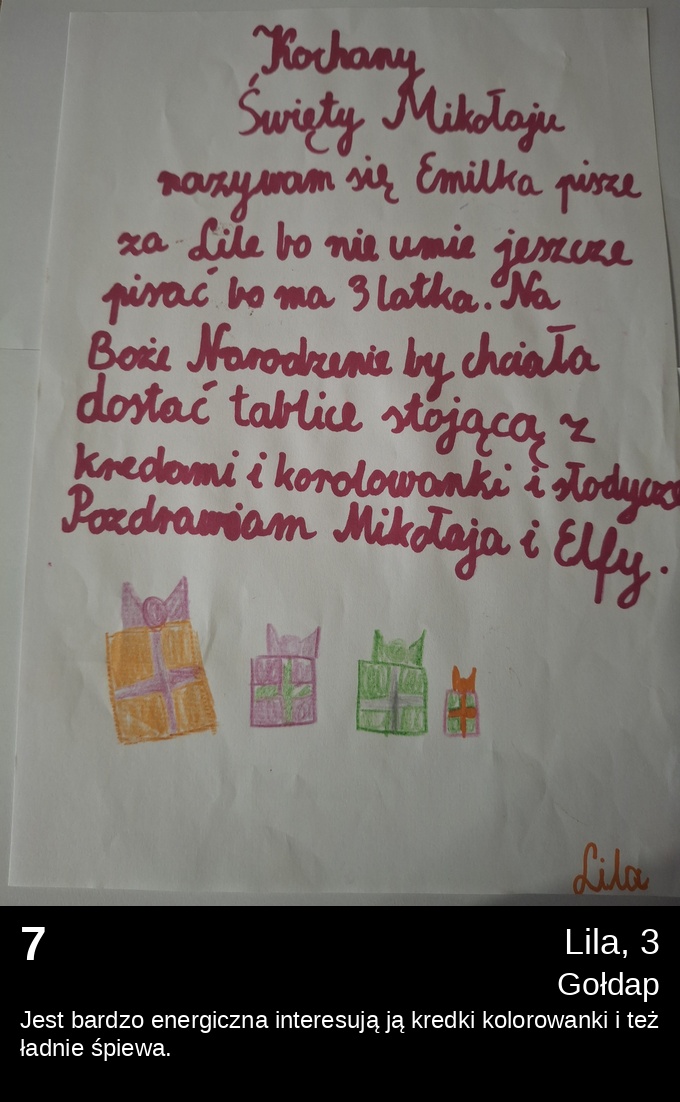 Kochany
Święty Mikołaju
nazywam się Emilka pisze
za Lile bo nie umie jeszcze
pisać bo ma 3 latka. Na
Boże Narodzenie by chciała
dostać tablice stojącą z
kredami i korolowanki i słodycze
Pozdrawiam Mikołaja i Elfy.
Lila
7
Lila, 3
Gołdap
Jest bardzo energiczna interesują ją kredki kolorowanki i też
ładnie śpiewa.